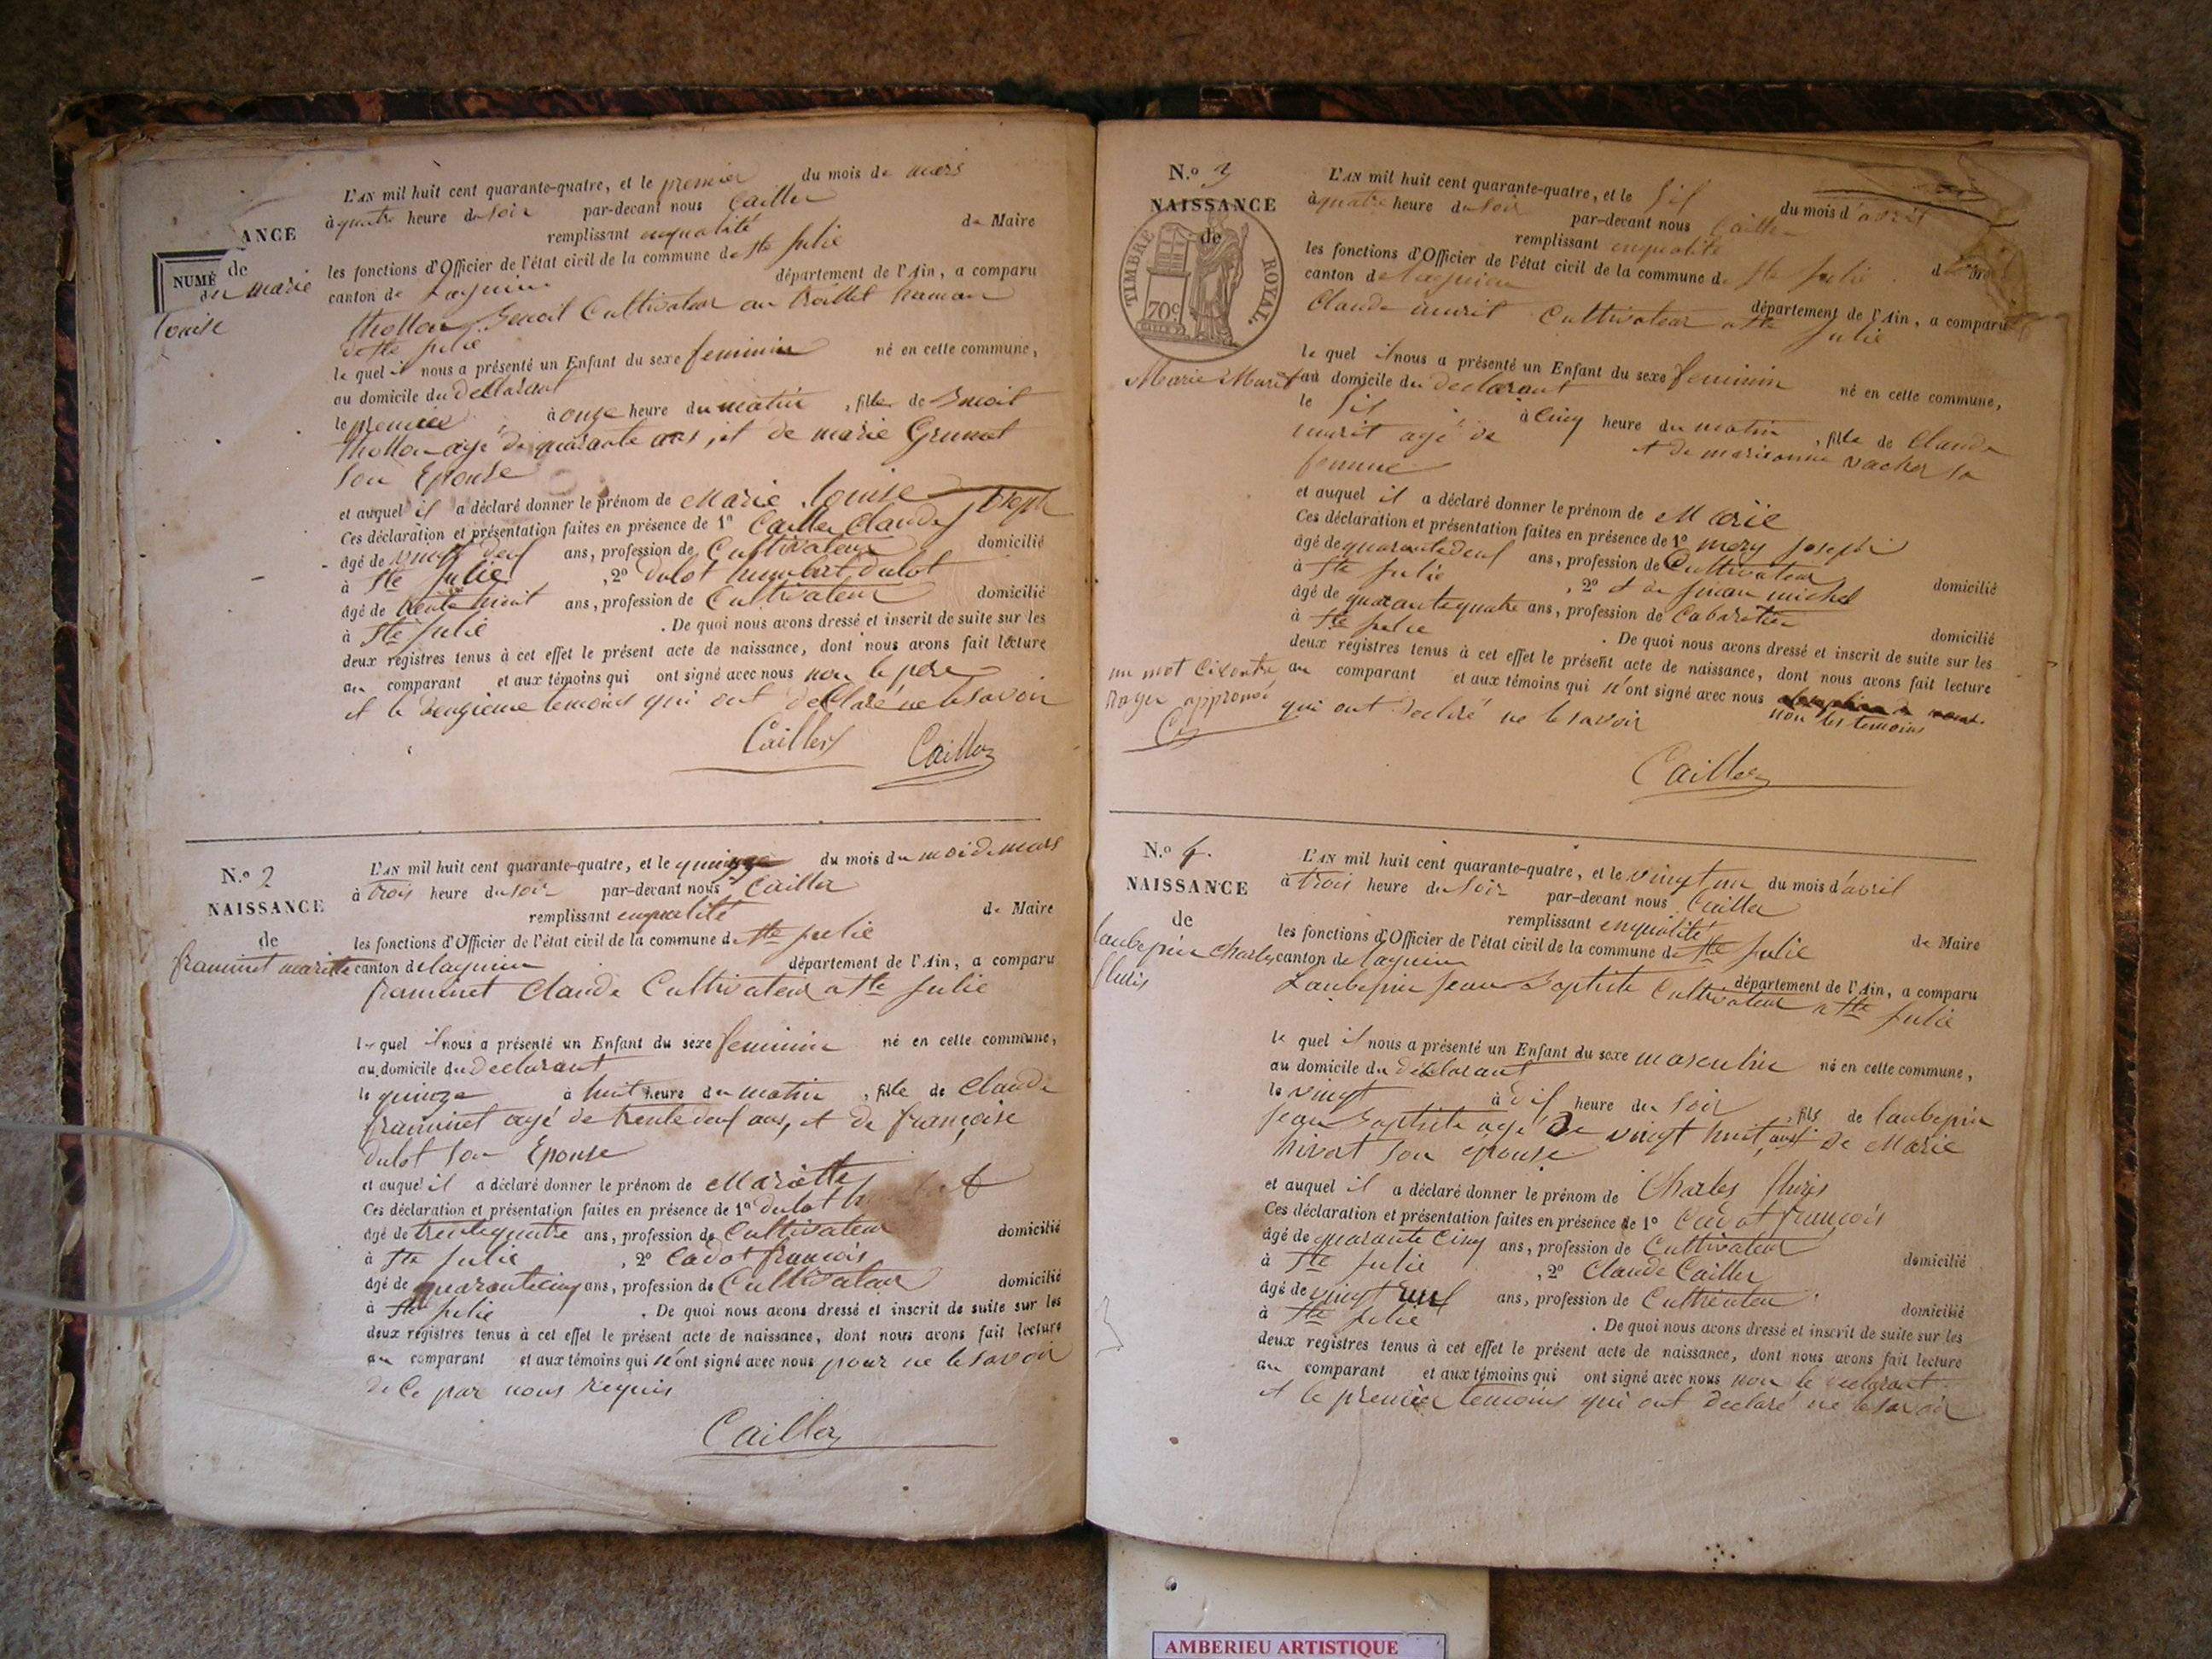 L'AN mil huit cent quarante-quatre, et le premier du mois de mars
à quatre heure du soir par-devant nous Cailler
remplissant enqualité de Maire
ANCE
de
NUMÉ
du marie
Louise
les fonctions d'Officier de l'état civil de la commune de Ste Julie
canton de Lagnieu département de l'Ain, a comparu
thollon Benoit Cultivateur au hamau
de Ste Julie
le quel il nous a présenté un Enfant du sexe feminin né en cette commune,
au domicile du declarant
le premier à onze heure du matin , fille de Benoit
thollon agé de quarante ans, et de marie
son Epouse
et auquel il a déclaré donner le prénom de Marie Louise
Ces déclaration et présentation faites en présence de 1º Cailler Claude Joseph
âgé de ans, profession de Cultivateur domicilié
à Ste Julie , 2º dulot humbert dulot
âgé de ans, profession de Cultivateur domicilié
à Ste Julie . De quoi nous avons dressé et inscrit de suite sur les
deux registres tenus à cet effet le présent acte de naissance, dont nous avons fait lecture
au comparant et aux témoins qui ont signé avec nous non le pere
et le deuxieme temoins qui ont declaré ne le savoir
Cailler Cailler
N.º 2
NAISSANCE
de
framinet mariette
L'AN mil huit cent quarante-quatre, et le quinze du mois du moi de mars
à trois heure du soir par-devant nous Cailler
remplissant enqualité de Maire
les fonctions d'Officier de l'état civil de la commune de Ste Julie
canton de lagnieu département de l'Ain, a comparu
framinet Claude Cultivateur a Ste Julie
le quel il nous a présenté un Enfant du sexe feminin né en cette commune,
au domicile du declarant
le quinze à huit heure du matin , fille de Claude
framinet agé de trente deux ans, et de françoise
dulot son Epouse
et auquel il a déclaré donner le prénom de Mariette
Ces déclaration et présentation faites en présence de 1º dulot
âgé de trente quatre ans, profession de Cultivateur domicilié
à Ste Julie , 2º Cadot francois
âgé de quarante cinq ans, profession de Cultivateur domicilié
à Ste Julie . De quoi nous avons dressé et inscrit de suite sur les
deux registres tenus à cet effet le présent acte de naissance, dont nous avons fait lecture
au comparant et aux témoins qui n'ont signé avec nous pour ne le savoir
de Ce par nous requis
Cailler
N.º 3
NAISSANCE
de
TIMBRE ROYAL
70c
Marie Murit
L'AN mil huit cent quarante-quatre, et le Six du mois d'avril
à quatre heure du soir par-devant nous Cailler
remplissant enqualité de
les fonctions d'Officier de l'état civil de la commune de Ste Julie
canton de lagnieu département de l'Ain, a comparu
Claude murit Cultivateur a Ste Julie
le quel il nous a présenté un Enfant du sexe feminin né en cette commune,
au domicile du declarant
le Six à Cinq heure du matin , fille de Claude
murit agé de et de marianne vacher sa
femme
et auquel il a déclaré donner le prénom de Marie
Ces déclaration et présentation faites en présence de 1º mery Joseph
âgé de quarante deux ans, profession de Cultivateur domicilié
à Ste Julie , 2º michel
âgé de quarante quatre ans, profession de Cabaretier domicilié
à Ste Julie . De quoi nous avons dressé et inscrit de suite sur les
deux registres tenus à cet effet le présent acte de naissance, dont nous avons fait lecture
au comparant et aux témoins qui n'ont signé avec nous
non les temoins
qui ont declaré ne le savoir
un mot Cicontre
rayer approuvé
Cailler
N.º 4.
NAISSANCE
de
laubepin Charles
L'AN mil huit cent quarante-quatre, et le vingt un du mois d'avril
à trois heure du soir par-devant nous Cailler
remplissant enqualité de Maire
les fonctions d'Officier de l'état civil de la commune de Ste Julie
canton de lagnieu département de l'Ain, a comparu
Laubepin Jean Baptiste Cultivateur a Ste Julie
le quel il nous a présenté un Enfant du sexe masculin né en cette commune,
au domicile du declarant
le vingt à dix heure du soir , fils de laubepin
jean Baptiste agé de vingt huit ans et de Marie
son epouse
et auquel il a déclaré donner le prénom de Charles
Ces déclaration et présentation faites en présence de 1º Cadot françois
âgé de quarante Cinq ans, profession de Cultivateur domicilié
à Ste Julie , 2º Claude Cailler
âgé de vingt neuf ans, profession de Cultivateur domicilié
à Ste Julie . De quoi nous avons dressé et inscrit de suite sur les
deux registres tenus à cet effet le présent acte de naissance, dont nous avons fait lecture
au comparant et aux témoins qui ont signé avec nous non le declarant
et le premier temoins qui ont declaré ne le savoir
AMBERIEU ARTISTIQUE